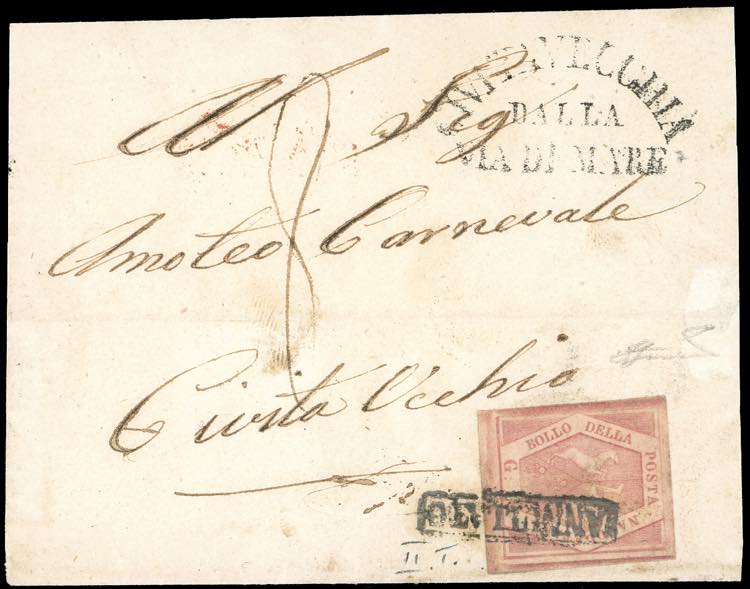 CIVITAVECCHIA
DALLA
VIA DI MARE
Al Sig
Amoteo Carnevale
Civita Vechio
8
BOLLO DELLA POSTA NA
G
ANNULLATO
II T.